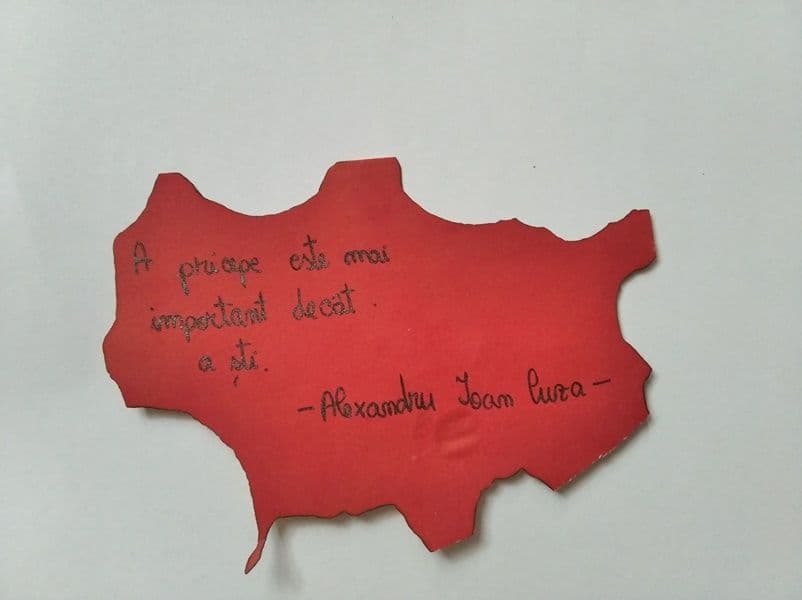 A pricepe este mai
important decât
a ști.
-Alexandru Ioan Cuza-